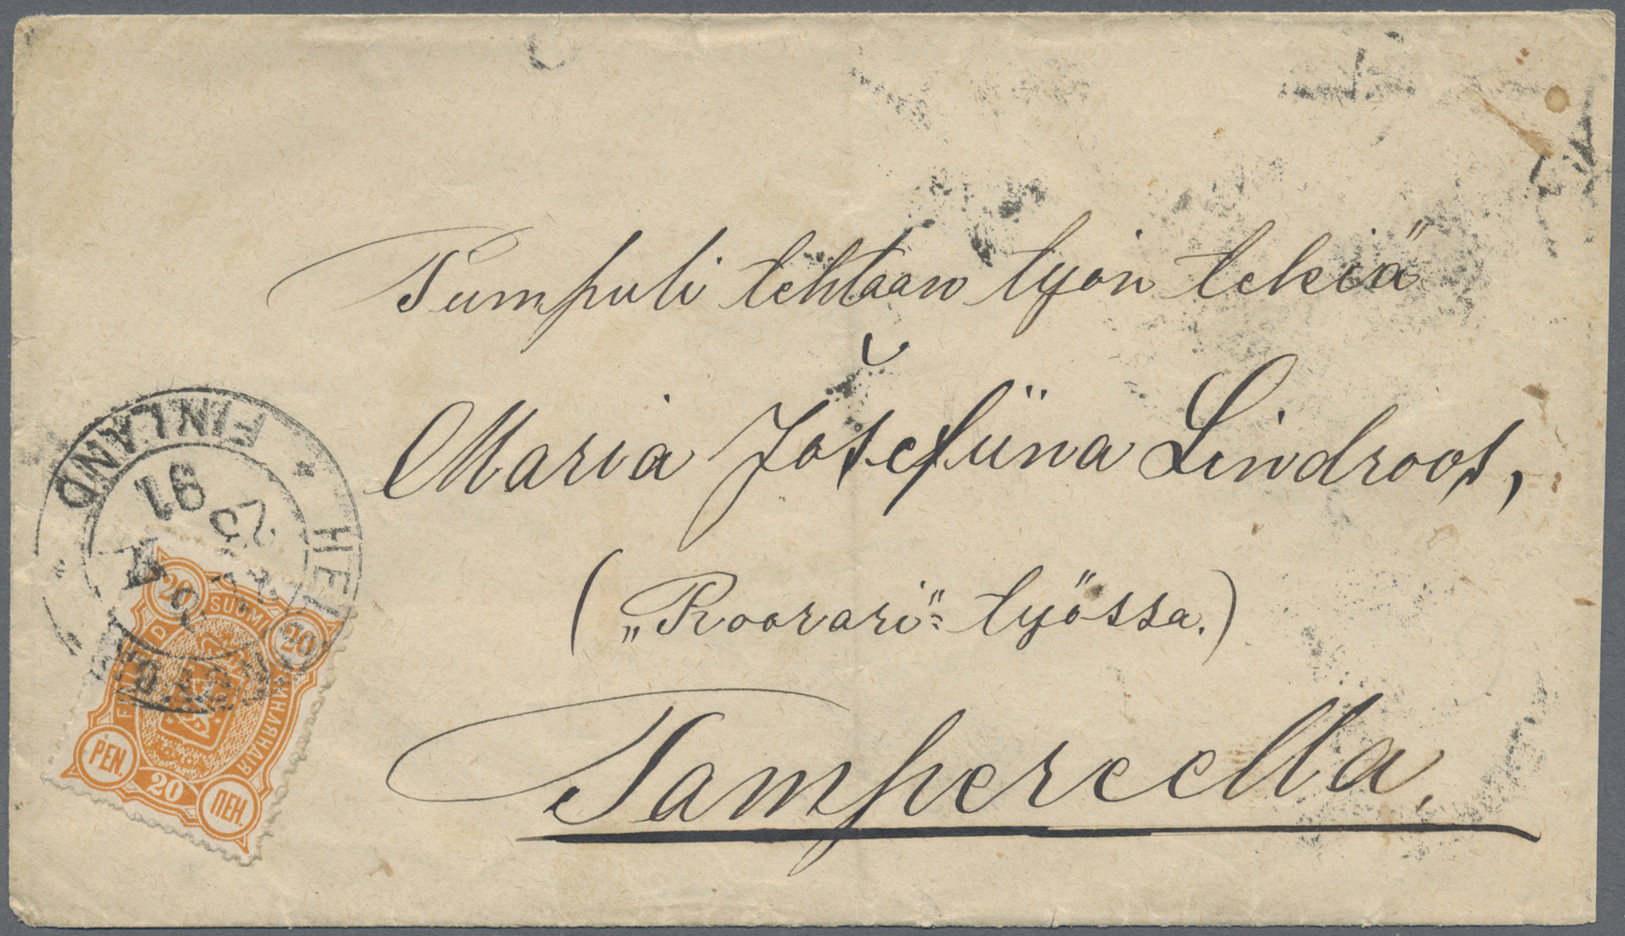 Pumpuli tehtaan työn tekiä
Maria Josefiina Lindroos,
(„Roovari“= työssa.)
Tampereella.
FINLAND
HEL
91
23
4
20
SUOMI
20
FINLAND
МАРКА
PEN.
20
ПЕН.